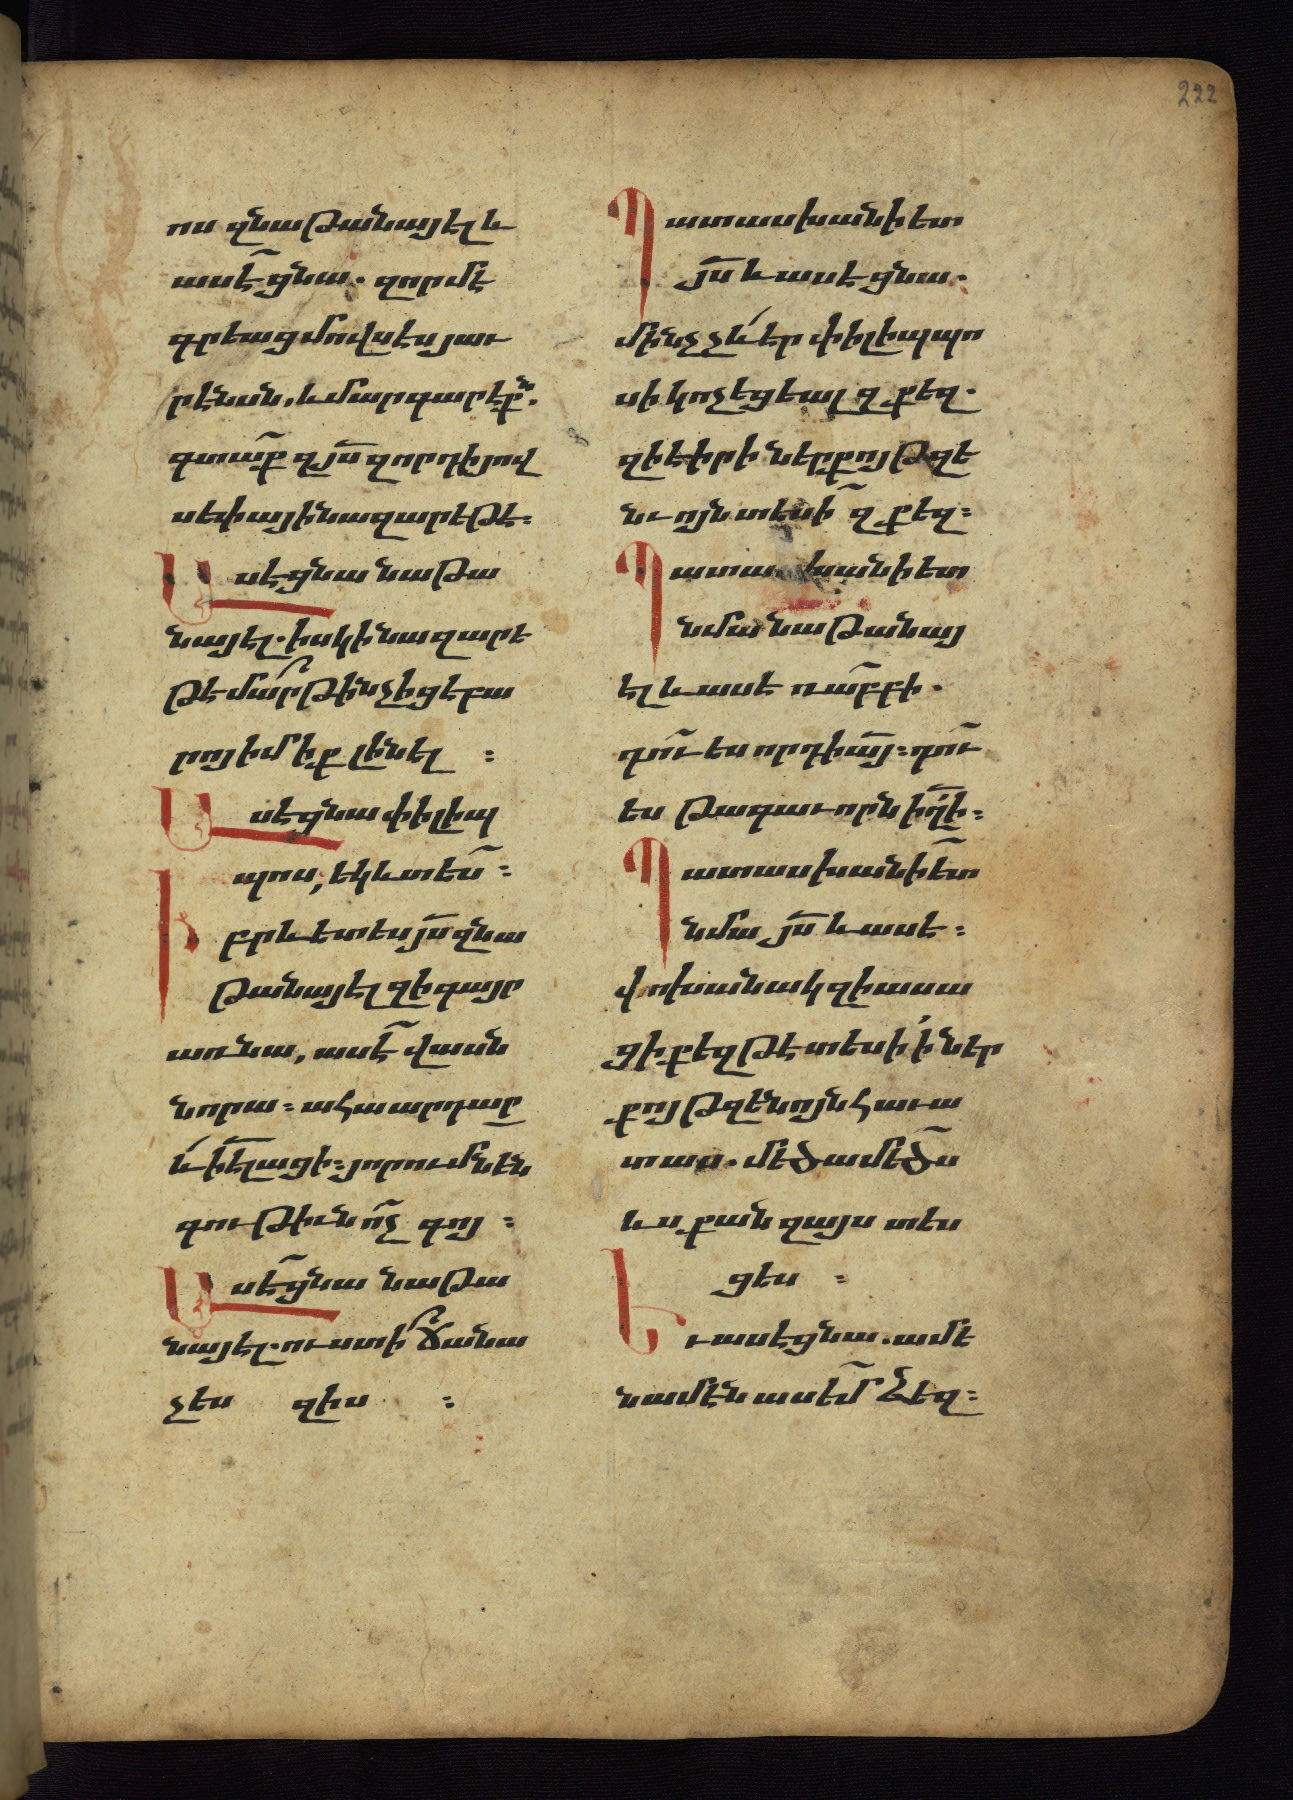 222
ոս զնաթանայել և
ասէ ցնա. զորմէ
գրեաց մովսես յաւ
րէնսն, և մարգարէքն.
գտաք զյս զորդի յով
սեփայ ի նազարեթէ։
Ասէ ցնա նաթա
նայել. իսկ ի նազարե
թէ մարթ ինչ իցէ բա
րոյ իմիք լինել ։
Ասէ ցնա փիլիպ
պոս, եկ և տես ։
Իբրև ետես յս զնա
թանայել զի գայր
առ նա, ասէ վասն
նորա ։ ահաարդար
և իէլացի ։ յորում նեն
գութիւն ոչ գոյ ։
Ասէ ցնա նաթա
նայել. ուստի ճանա
չես զիս ։
Պատասխանի ետ
յս և ասէ ցնա.
մինչ չև էր փիլիպպո
սի կոչեցեալ զքեզ.
զի էիր ի ներքոյ թզե
նւոյն տեսի զքեզ ։
Պատասխանի ետ
նմա նաթանայ
ել և ասէ ռաբբի.
դու ես որդի այ ։ դու
ես թագաւորն իղի ։
Պատասխանի ետ
նմա յս և ասէ ։
փոխանակ զի ասա
ցի քեզ թէ տեսի ի ներ
քոյ թզենոյն հաւա
տաս. մեծամեծս
ևս քան զայս տես
ցես ։
Եւ ասէ ցնա. ամէ
ն ամէն ասեմ ձեզ ։